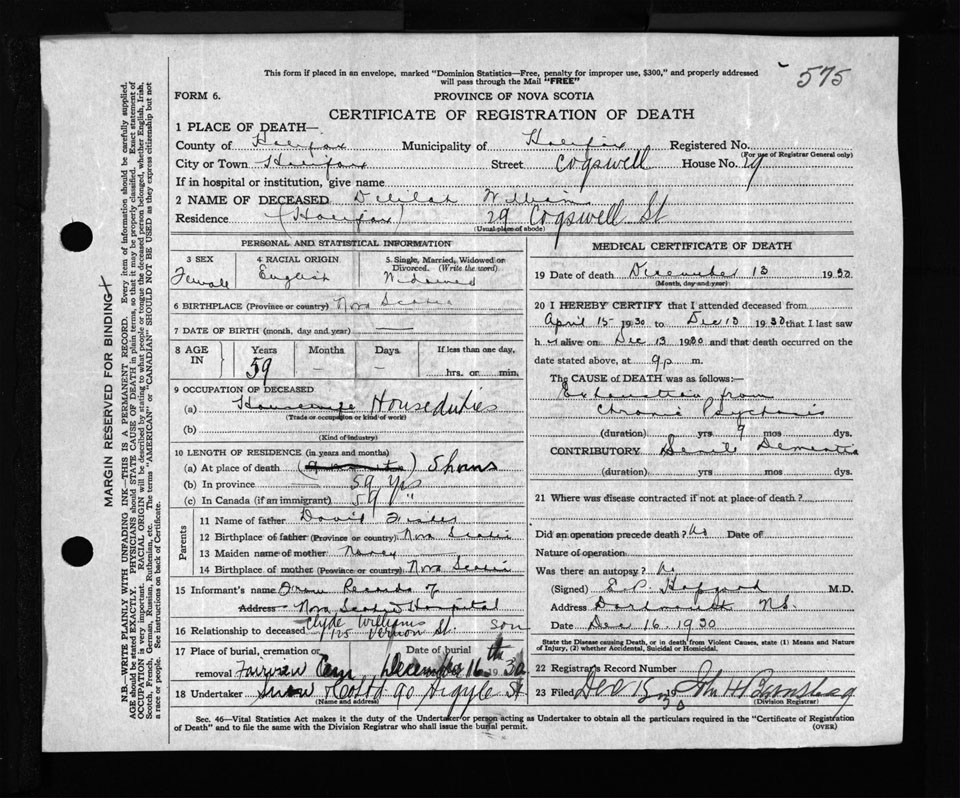 575
This form if placed in an envelope, marked "Dominion Statistics—Free, penalty for improper use, $300," and properly addressed
will pass through the Mail "FREE"
FORM 6.
PROVINCE OF NOVA SCOTIA
CERTIFICATE OF REGISTRATION OF DEATH
1 PLACE OF DEATH—
County of Halifax Municipality of Halifax Registered No.
(For use of Registrar General only)
City or Town Halifax Street Cogswell House No. 19
If in hospital or institution, give name
2 NAME OF DECEASED Delilah Williams
Residence (Halifax) 29 Cogswell St
(Usual place of abode)
PERSONAL AND STATISTICAL INFORMATION
3 SEX
Female
4 RACIAL ORIGIN
English
5 Single, Married, Widowed or
Divorced. (Write the word)
Widowed
6 BIRTHPLACE (Province or country) Nova Scotia
7 DATE OF BIRTH (month, day and year)
8 AGE
IN
Years
59
Months
—
Days
—
If less than one day,
hrs. or min.
9 OCCUPATION OF DECEASED
(a) Housewife Houseduties
(Trade or occupation or kind of work)
(b)
(Kind of industry)
10 LENGTH OF RESIDENCE (in years and months)
(a) At place of death
(b) In province 59 Yrs
(c) In Canada (if an immigrant) 59 "
Parents
11 Name of father David
12 Birthplace of father (Province or country) Nova Scotia
13 Maiden name of mother Nancy
14 Birthplace of mother (Province or country) Nova Scotia
15 Informant's name From Records of
Address Nova Scotia Hospital
Clyde Williams son
16 Relationship to deceased 125 Vernon St.
17 Place of burial, cremation or Date of burial
removal Fairview Cem December 16th 1930
18 Undertaker Snow & Co Ltd 90 Argyle St
(Name and address)
MEDICAL CERTIFICATE OF DEATH
19 Date of death December 13 1930
(Month, day and year)
20 I HEREBY CERTIFY that I attended deceased from
April 15 1930 to Dec 13 1930 that I last saw
h er alive on Dec 13 1930 and that death occurred on the
date stated above, at 9 p m.
The CAUSE of DEATH was as follows:—
Exhaustion from
Chronic Psychosis
(duration) yrs 9 mos dys.
CONTRIBUTORY Senile Dementia
(duration) yrs. mos. dys.
21 Where was disease contracted if not at place of death?
Did an operation precede death? No Date of
Nature of operation
Was there an autopsy? No
(Signed) M.D.
Address Dartmouth N.S.
Date Dec 16 1930
State the Disease causing Death, or in death from Violent Causes, state (1) Means and Nature
of Injury, (2) whether Accidental, Suicidal or Homicidal.
22 Registrar's Record Number
23 Filed Dec 15 30
(Division Registrar)
Sec. 46—Vital Statistics Act makes it the duty of the Undertaker or person acting as Undertaker to obtain all the particulars required in the "Certificate of Registration
of Death" and to file the same with the Division Registrar who shall issue the burial permit.
(OVER)
MARGIN RESERVED FOR BINDING
N.B.—WRITE PLAINLY WITH UNFADING INK—THIS IS A PERMANENT RECORD. Every item of information should be carefully supplied.
AGE should be stated EXACTLY. PHYSICIANS should STATE CAUSE OF DEATH in plain terms, so that it may be properly classified. Exact statement of
OCCUPATION is very important. RACIAL ORIGIN will be described by stating to what people or tongue the deceased person belonged, whether English, Irish,
Scotch, French, German, Russian, Ruthenian, etc. The terms "AMERICAN" or "CANADIAN" SHOULD NOT BE USED as they express citizenship but not
a race or people. See instructions on back of Certificate.